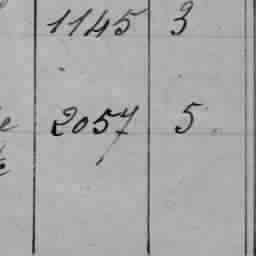 1145 3
2057 5